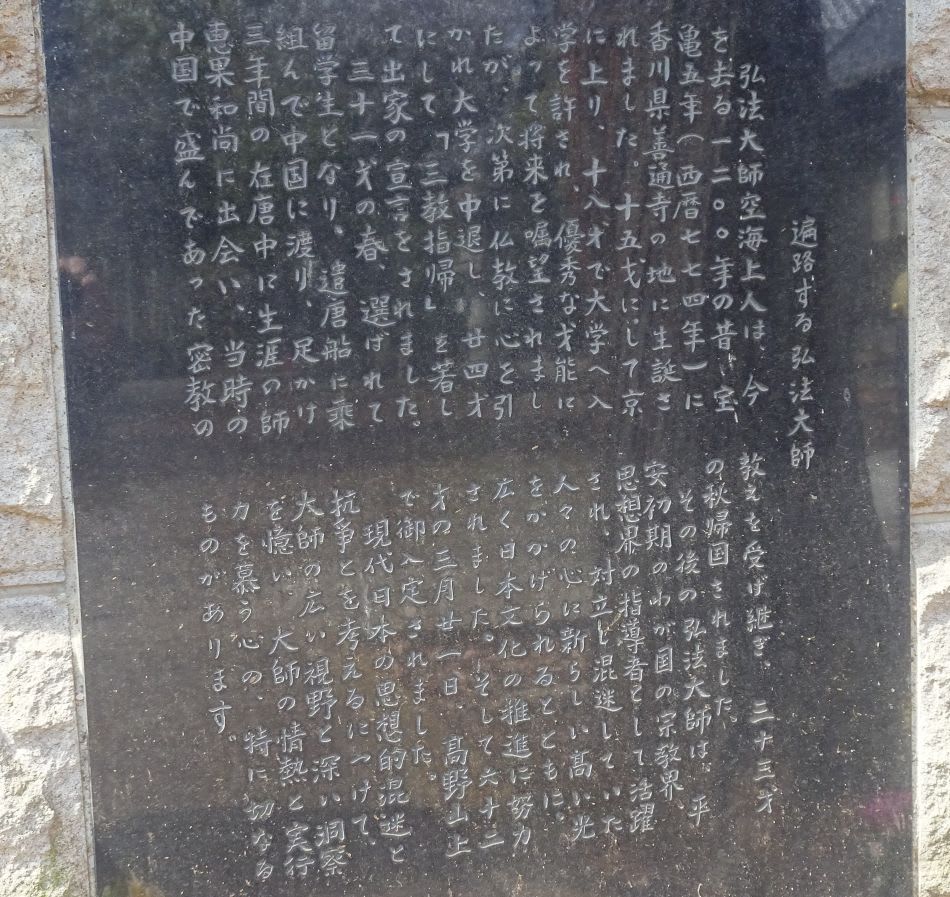 遍路する弘法大師
弘法大師空海上人は、今
を去る一二〇〇年の昔、室
亀五年(西暦七七四年)に
香川県善通寺の地に生誕さ
れました。十五才にして京
に上り、十八才で大学へ入
学を許され、優秀な才能に
よって将来を嘱望されまし
たが、次第に仏教に心を引
かれ大学を中退し、廿四才
にして「三教指帰」を著し
て出家の宣言をされました。
三十一才の春、選ばれて
留学生となり。遣唐船に乗
組んで中国に渡り、足かけ
三年間の在唐中に生涯の師
恵果和尚に出会い、当時の
中国で盛んであった密教の
教えを受け継ぎ、三十三才
の秋帰国されました。
その後の弘法大師は、平
安初期のわが国の宗教界、
思想界の指導者として活躍
され、対立し混迷していた
人々の心に新らしい高い光
をかかげられるとともに。
広く日本文化の推進に努力
されました。そして六十二
才の三月廿一日、高野山上
で御入定されました。
現代日本の思想的混迷と
抗争とを考えるにつけて、
大師の広い視野と深い洞察
を憶い、大師の情熱と実行
力を慕う心の、特に切なる
ものがあります。